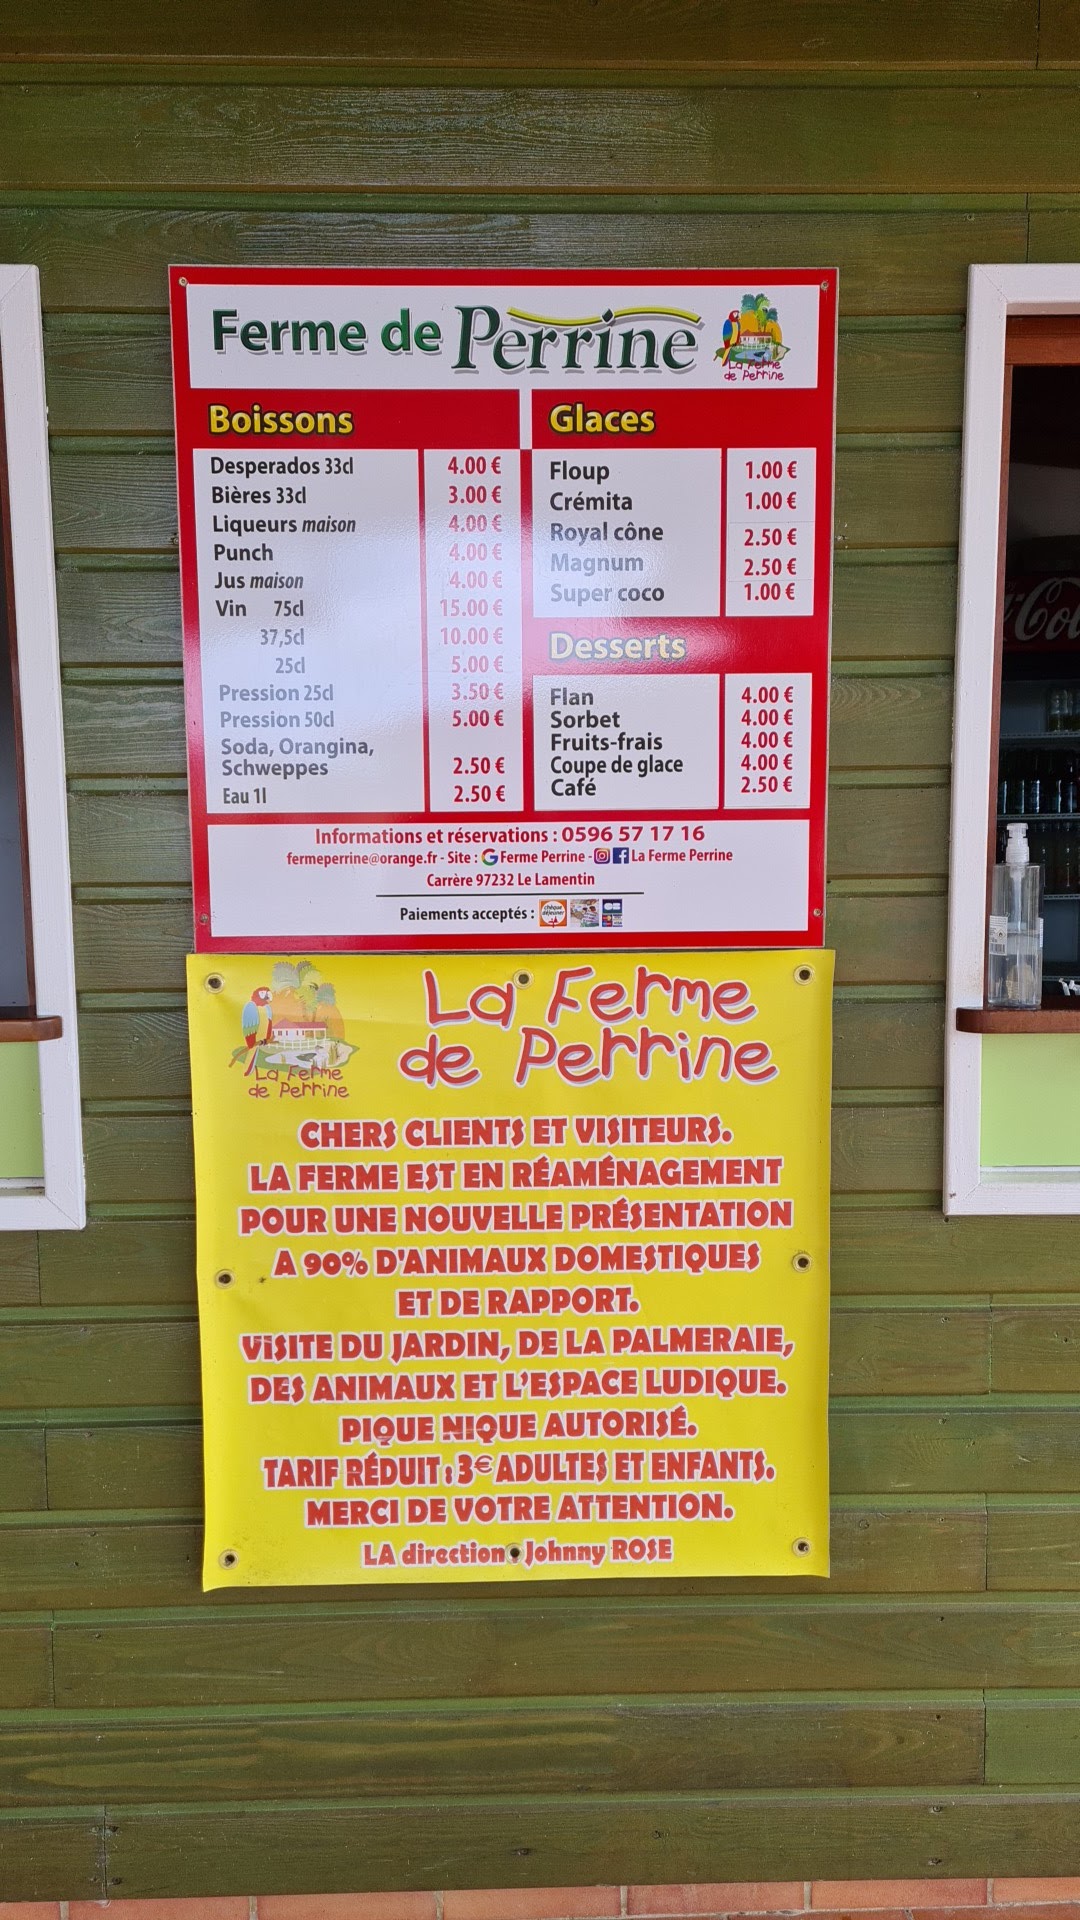 Ferme de Perrine
La Ferme
de Perrine
Boissons
Desperados 33cl 4.00 €
Bières 33cl 3.00 €
Liqueurs maison 4.00 €
Punch 4.00 €
Jus maison 4.00 €
Vin 75cl 15.00 €
37,5cl 10.00 €
25cl 5.00 €
Pression 25cl 3.50 €
Pression 50cl 5.00 €
Soda, Orangina,
Schweppes 2.50 €
Eau 1l 2.50 €
Glaces
Floup 1.00 €
Crémita 1.00 €
Royal cône 2.50 €
Magnum 2.50 €
Super coco 1.00 €
Desserts
Flan 4.00 €
Sorbet 4.00 €
Fruits-frais 4.00 €
Coupe de glace 4.00 €
Café 2.50 €
Informations et réservations : 0596 57 17 16
fermeperrine@orange.fr - Site : G Ferme Perrine - f La Ferme Perrine
Carrère 97232 Le Lamentin
Paiements acceptés : chèque déjeuner
La Ferme
de Perrine
La Ferme
de Perrine
CHERS CLIENTS ET VISITEURS.
LA FERME EST EN RÉAMÉNAGEMENT
POUR UNE NOUVELLE PRÉSENTATION
A 90% D'ANIMAUX DOMESTIQUES
ET DE RAPPORT.
VISITE DU JARDIN, DE LA PALMERAIE,
DES ANIMAUX ET L'ESPACE LUDIQUE.
PIQUE NIQUE AUTORISÉ.
TARIF RÉDUIT : 3€ ADULTES ET ENFANTS.
MERCI DE VOTRE ATTENTION.
LA direction : Johnny ROSE